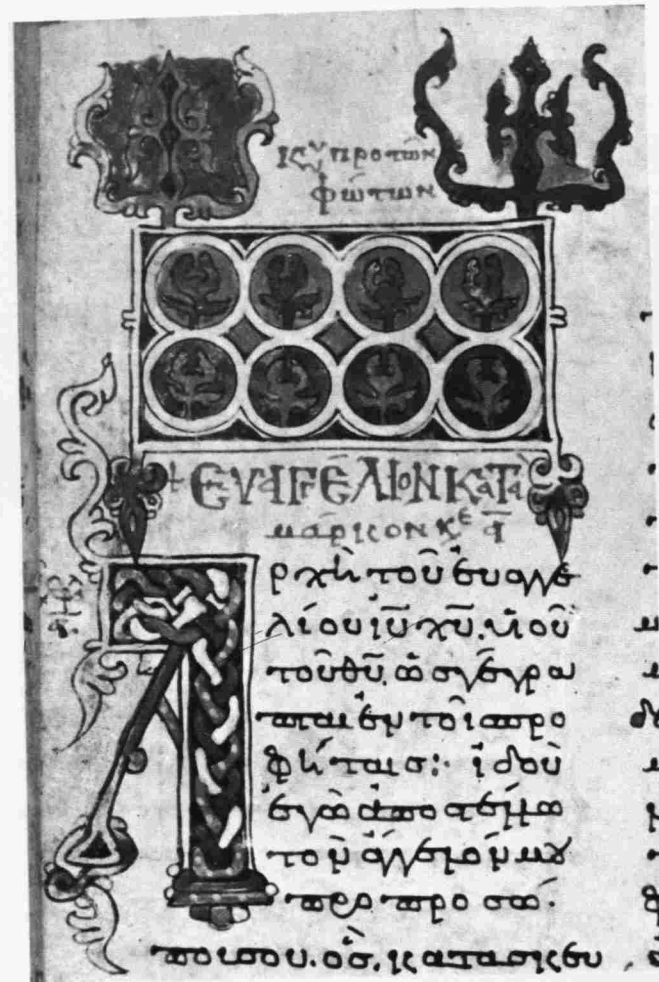 κυ προ τῶν
φώτων
+ ΕΥΑΓΓΕΛΙΟΝ ΚΑΤΑ
μάρκον κε ᾱ
Αρχὴ τοῦ ἐυαγγε
λίου ἰῡ χῡ. ὑιοῦ
τοῦ θῡ. ὡσ γέγρα
πται ἐν τοῖσ προ
φήταισ: ἰδοὺ
ἐγὼ ἀποστέλλω
τὸν ἄγγελόν μου
προ προσώ
που σου. ὃσ, κατασκευ